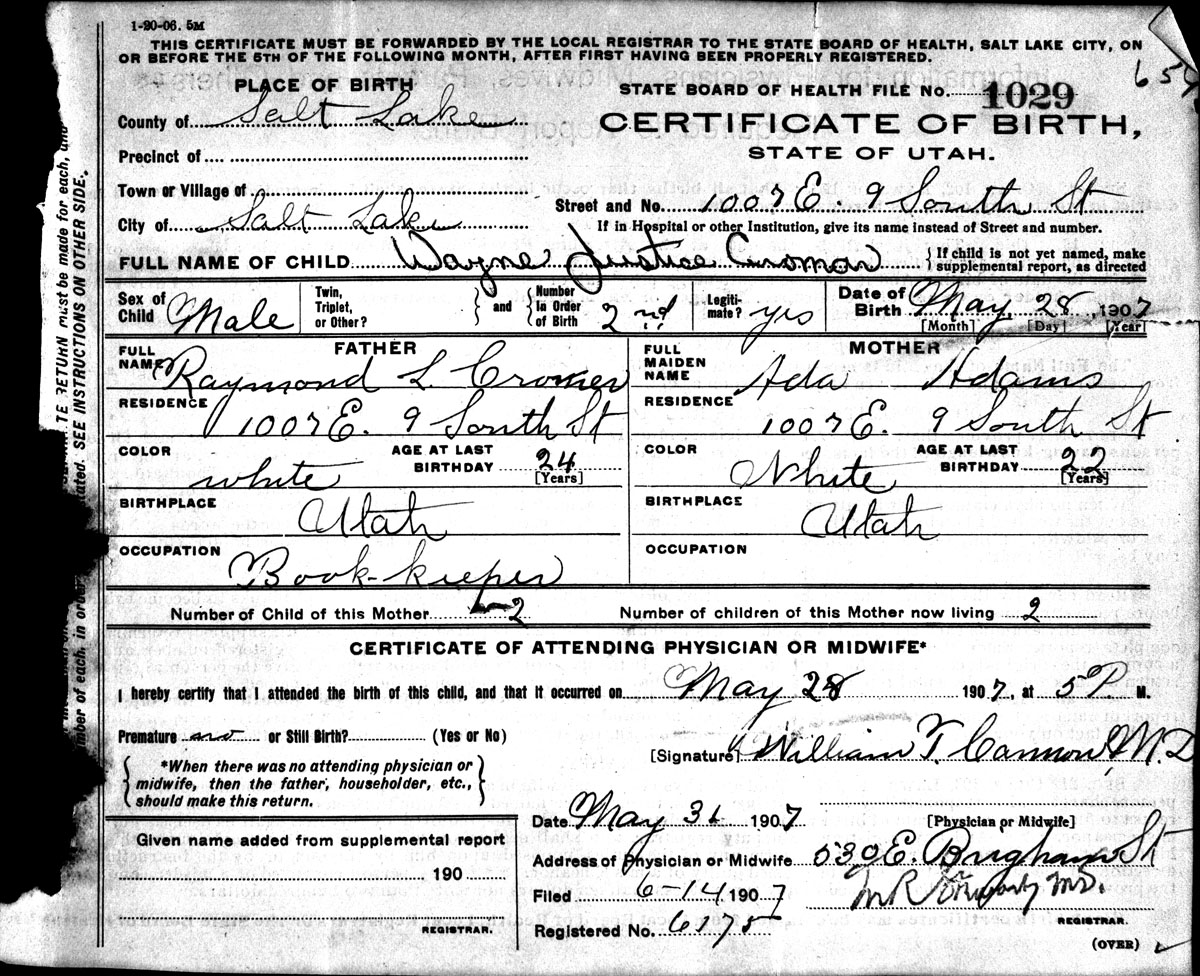 1-20-06. 5M
THIS CERTIFICATE MUST BE FORWARDED BY THE LOCAL REGISTRAR TO THE STATE BOARD OF HEALTH, SALT LAKE CITY, ON
OR BEFORE THE 5TH OF THE FOLLOWING MONTH, AFTER FIRST HAVING BEEN PROPERLY REGISTERED.
PLACE OF BIRTH
STATE BOARD OF HEALTH FILE No. 1029
County of Salt Lake
CERTIFICATE OF BIRTH,
Precinct of
STATE OF UTAH.
Town or Village of
Street and No. 1007 E. 9 South St
City of Salt Lake
If in Hospital or other Institution, give its name instead of Street and number.
FULL NAME OF CHILD Wayne Justice Cromar {If child is not yet named, make supplemental report, as directed
Sex of Child Male
Twin, Triplet, or Other?
and
Number In Order of Birth 2nd
Legitimate? yes
Date of Birth May 28, 1907
[Month] [Day] [Year]
FATHER
FULL NAME Raymond L Cromer
RESIDENCE
1007 E. 9 South St
COLOR white
AGE AT LAST BIRTHDAY 24
[Years]
BIRTHPLACE
Utah
OCCUPATION
Book-keeper
MOTHER
FULL MAIDEN NAME Ada Adams
RESIDENCE
1007 E. 9 South St
COLOR White
AGE AT LAST BIRTHDAY 22
[Years]
BIRTHPLACE
Utah
OCCUPATION
Number of Child of this Mother 2 Number of children of this Mother now living 2
CERTIFICATE OF ATTENDING PHYSICIAN OR MIDWIFE*
I hereby certify that I attended the birth of this child, and that it occurred on May 28 1907, at 5 P. M.
Premature no or Still Birth? (Yes or No)
[Signature] William T. Cannon, M.D
{*When there was no attending physician or
midwife, then the father, householder, etc.,
should make this return.}
Date May 31 1907
[Physician or Midwife]
Address of Physician or Midwife 530 E. Brigham St
Filed 6-14 1907
REGISTRAR.
Registered No. 6175
(OVER)
Given name added from supplemental report
190
REGISTRAR.
SEE INSTRUCTIONS ON OTHER SIDE.